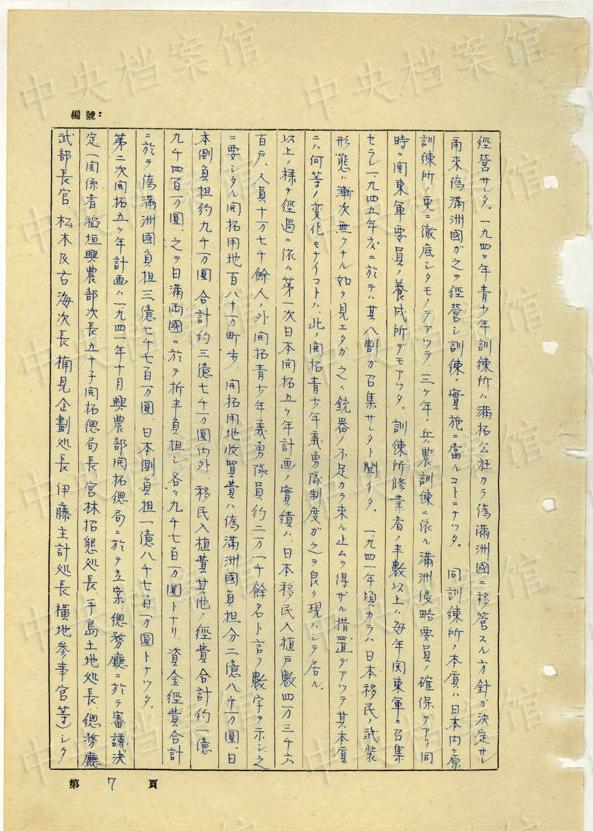 編號:
經營サレタ。一九四〇年青少年訓練所ハ滿拓公社カラ偽滿洲國ニ移管スル方針ガ決定サレ
甬来偽滿洲國ガ之ヲ經營シ訓練ノ實施ニ當ルコトニナツタ。同訓練所ノ本質ハ日本内原
訓練所ノ更ニ徹底シタモノデアツテ三ケ年ノ兵農訓練ニ依ル滿洲侵略要員ノ確保デアリ同
時ニ関東軍要員ノ養成所デモアツタ。訓練所修業者ノ半数以上ハ毎年関東軍ニ召集
セラレ一九四五年六ニ於テハ其八割ガ召集サレタト聞イタ。一九四一年頃カラハ日本移民ノ武装
形態ハ漸次無クナル如ク見エタガ之ハ銃器ノ不足カラ来ル止ムヲ得ザル措置デアツテ其本質
ニハ何等ノ変化モナイコトハ此ノ開拓青少年義勇隊制度ガ之ヲ良ク現ハシテ居ル。
以上ノ様ナ經過ニ依ル第一次日本開拓五ケ年計画ノ實績ハ日本移民入植戸數四万三千六
百戸、人員十万七千餘人ノ外開拓青少年義勇隊員約二万一千餘名ト言フ數字ヲ示シ之
ニ要シタル開拓用地百八十万町歩、開拓用地收買費ハ偽滿洲國負担分二億八千万圓、日
本側負担約九千万圓合計約三億七千万圓内外移民入植費其他ノ經費合計約一億
九千四百万圓之ヲ日滿両國ニ於テ折半負担シ各々九千七百万圓トナリ資金經費合計
ニ於テ偽滿洲國負担三億七千七百万圓日本側負担一億八千七百万圓トナツタ。
第二次開拓五ケ年計画ハ一九四一年十月興農部開拓總局ニ於テ立案總務廳ニ於テ審議決
定(関係者稻垣興農部次長五十子開拓總局長宮林拓懇処長手島土地処長總務廳
武部長官松本及古海次長楠見企劃処長伊藤主計処長横地参事官等)シタ
第 7 頁
中央档案馆